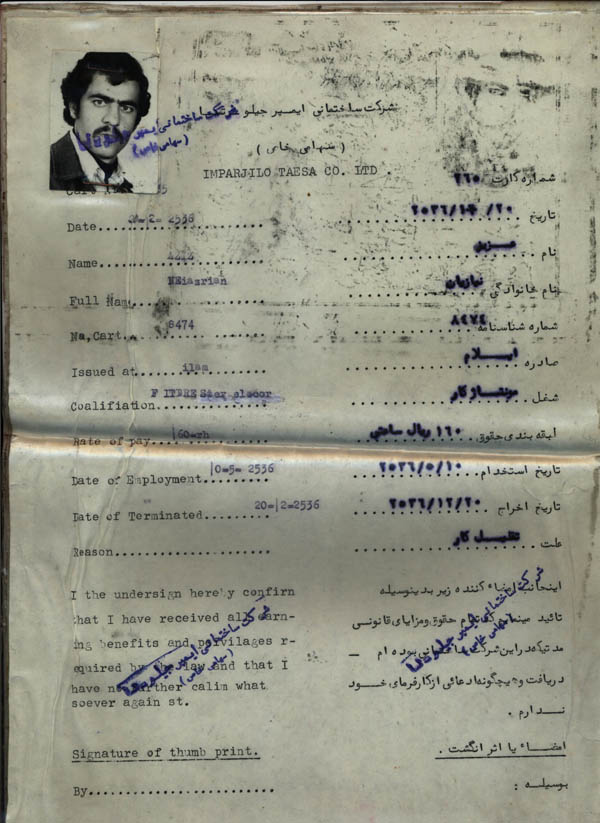 شرکت ساختمانی ایمپر جیلو
( سهامی خاص )
IMPARJILO TAESA CO. LTD .
شماره کارت ۲۶۰
Date............ -2- 2536
تاریخ ۲۵۳۶/۱۲/۲۰
Name............
نام عزیز
Full Nam NEiasrian
نام خانوادگی نیازیان
Na,Cart. 8474
شماره شناسنامه ۸۴۷۴
Issued at ilam
صادره ایلام
Coalifiation............ F ITDRE
شغل مونتاژ کار
Rate of pay. |60=rh
حقوق ۱۶۰ ریال ساعتی
Date of Employment......... |0=5= 2536
تاریخ استخدام ۲۵۳۶/۵/۱۰
Date of Terminated......... 20=|2=2536
تاریخ اخراج ۲۵۳۶/۱۲/۲۰
Reason............
علت تقلیل کار
I the undersign hereby confirm
that I have received all earn-
ing benefits and privilages r-
equired by the law and that I
have no further calim what
soever again st.
اینجانب امضاء کننده زیر بدینوسیله
تائید مینمایم حقوق ومزایای قانونی
مدتیکه دراین شرکت بوده ام _
دریافت وهیچگونه ادعائی ازکارفرمای خود
ندارم .
شرکت ساختمانی ایمپر جیلو تاسا
(سهامی خاص)
Signature of thumb print.
امضاء یا اثر انگشت .
By............
بوسیله :